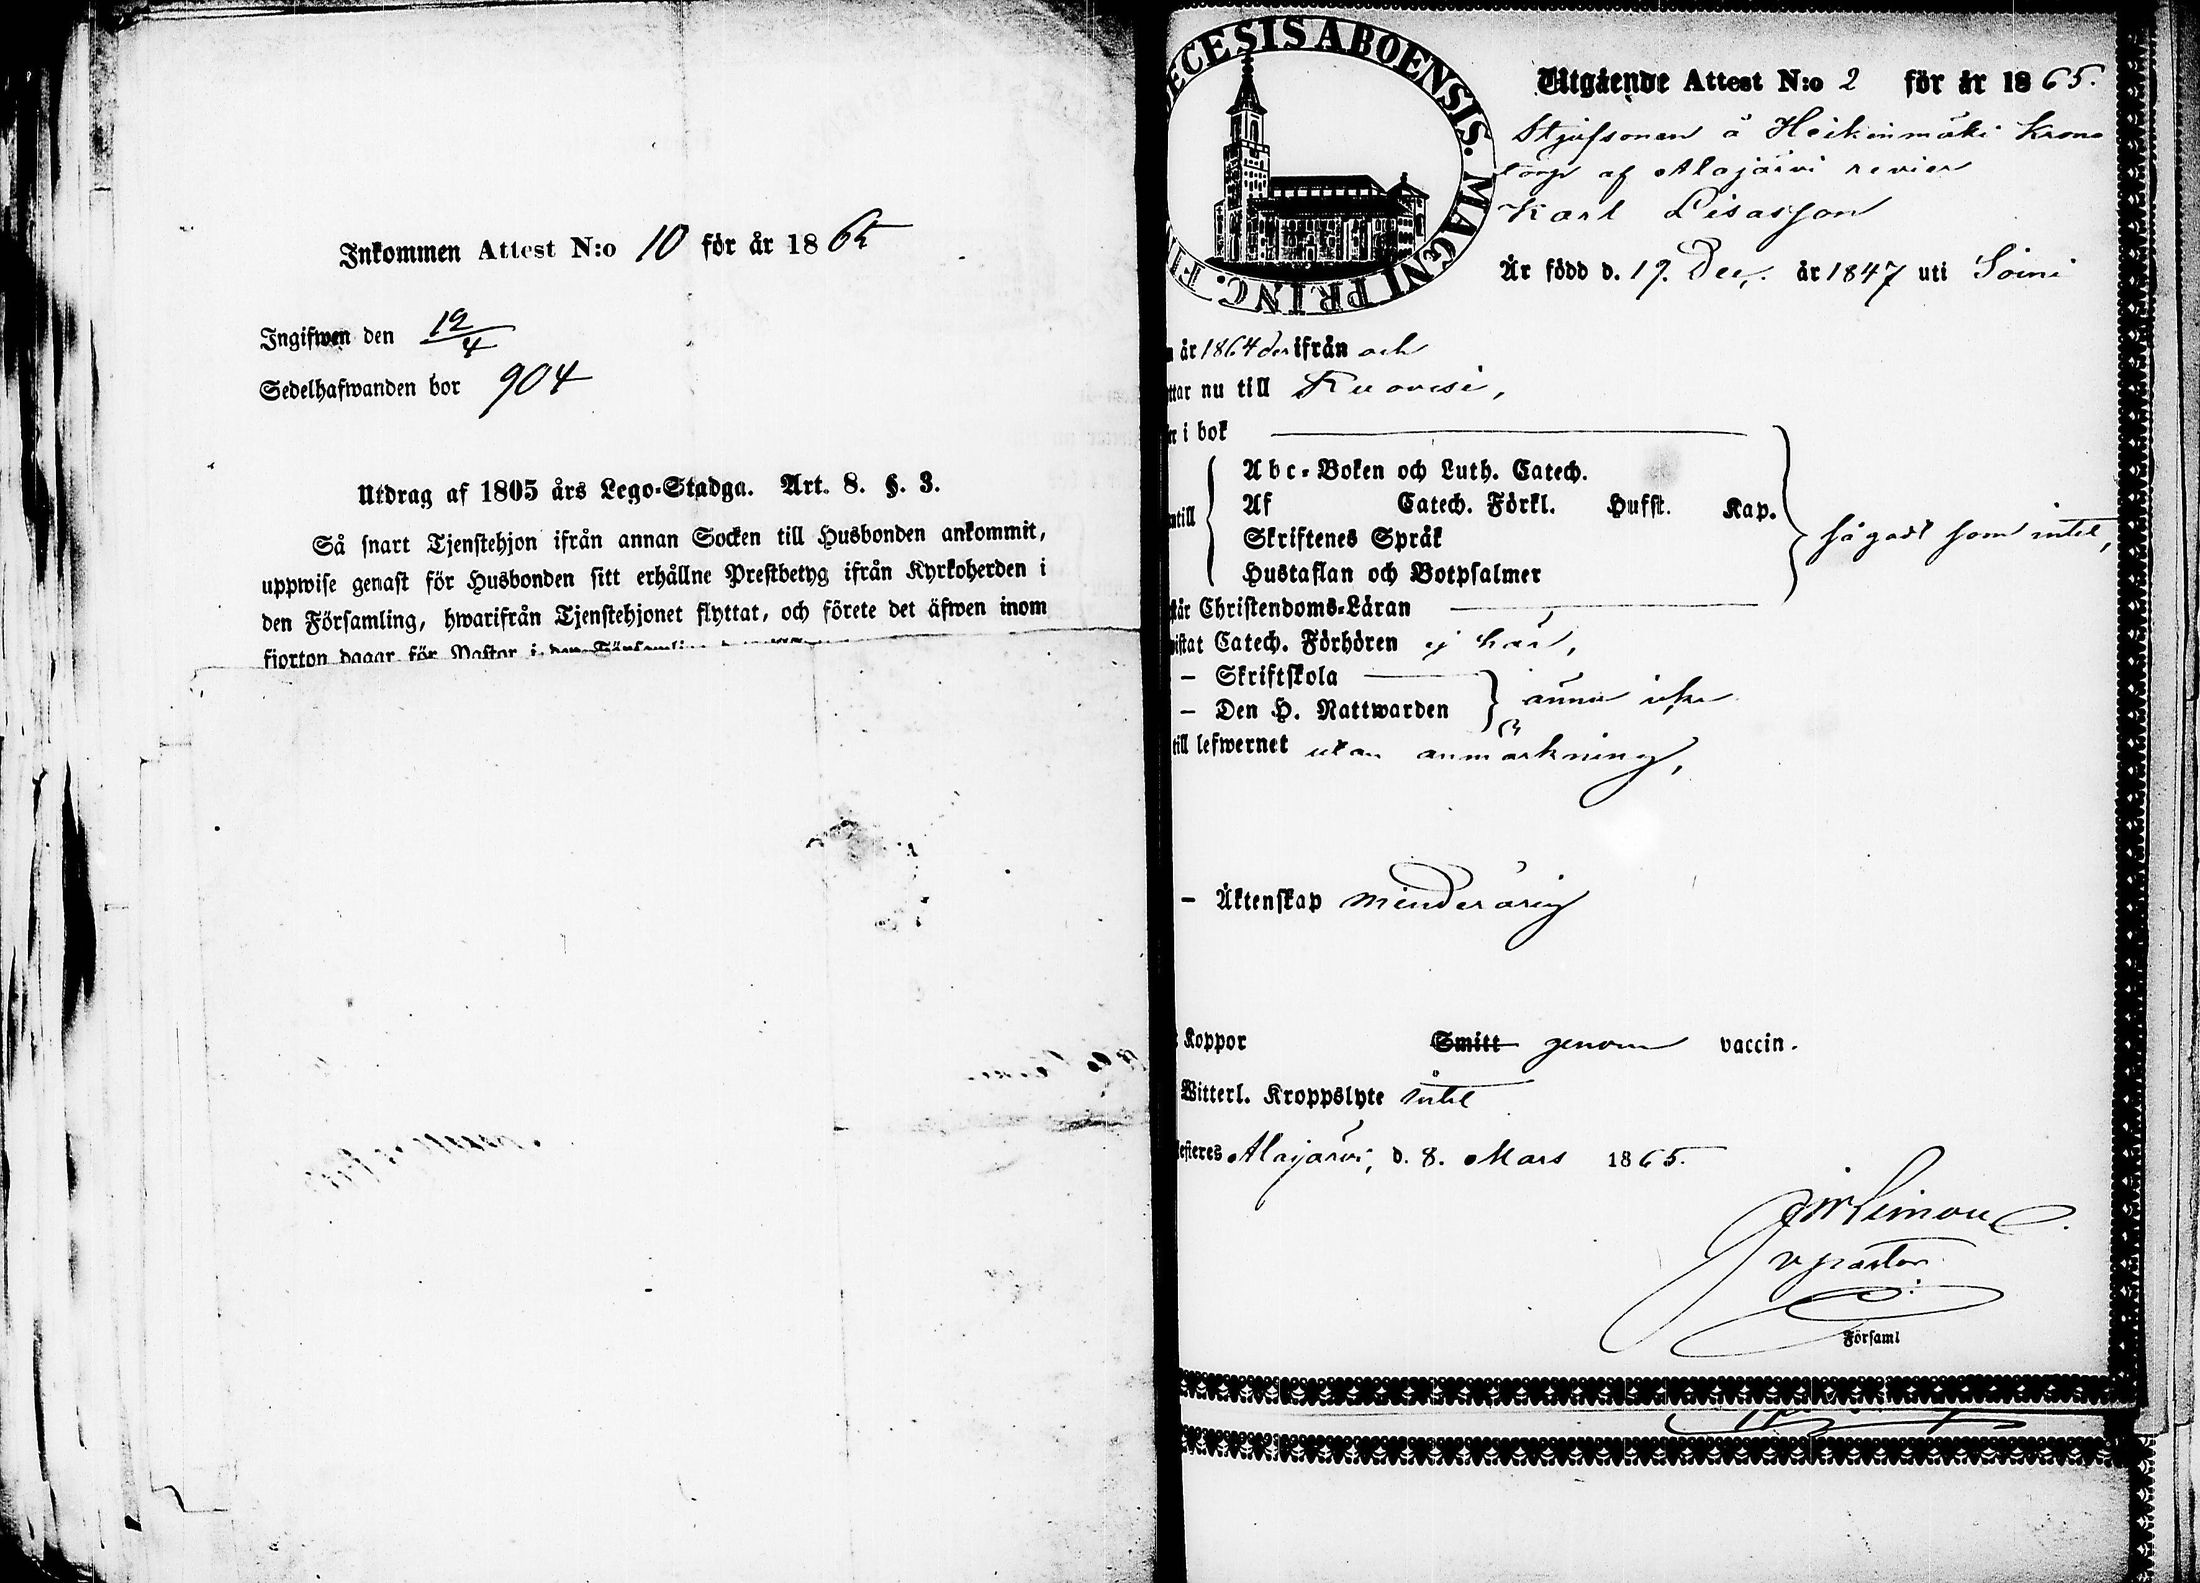 Inkommen Attest N:o 10 för år 1865
Ingifwen den 12/4
Sedelhafwanden bor 904
Utdrag af 1805 års Lego-Stadga. Art. 8. §. 3.
Så snart Tjenstehjon ifrån annan Socken till Husbonden ankommit,
uppwise genast för Husbonden sitt erhållne Prestbetyg ifrån Kyrkoherden i
den Församling, hwarifrån Tjenstehjonet flyttat, och förete det äfwen inom
fjorton dagar för Pastor i den Församling
ECESIS ABOENSIS. MAGNI PRINC. FI
Utgående Attest N:o 2 för år 1865.
Stjufsonen å Heikinmäki Krono
torp af Alajärvi revier
Karl Lisasson
Är född d. 19. Dec. år 1847 uti Soini
år 1864 der ifrån och
ttar nu till Ruovesi,
i bok
Abc-Boken och Luth. Catech.
Af Catech. Förkl. Hufst. Kap.
ntill
så godt som intet,
Skriftenes Språk
Hustaflan och Botpsalmer
står Christendoms-Läran
wistat Catech. Förhören ej här,
– Skriftskola
– Den H. Nattwarden ännu icke
till lefwernet utan anmärkning,
– Äktenskap minderårig
Koppor Smitt genom vaccin.
Witterl. Kroppslyte intet
testeres Alajärvi, d. 8. Mars 1865.
v pastor
Församl